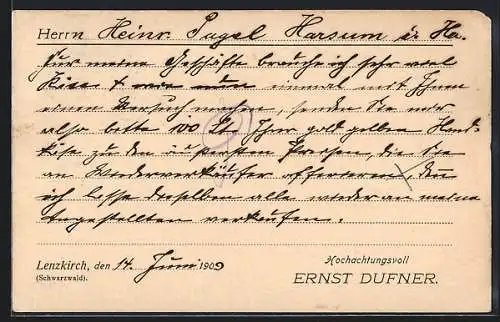 Herrn Heinr. Pagel Harsum i/ Ha.
Für meine Geschäfte brauche ich sehr viel
Käse + nun einmal mit Ihnen
einen Versuch machen, senden Sie mir
also bitte 100 St. Ihrer gold gelben Hand-
käse zu den äussersten Preisen, die Sie
an Wiederverkäufer offerieren, denn
ich lasse dieselben alle wieder an meine
Angestellten verkaufen.
Lenzkirch, den 14. Juni 1909
(Schwarzwald).
Hochachtungsvoll
ERNST DUFNER.